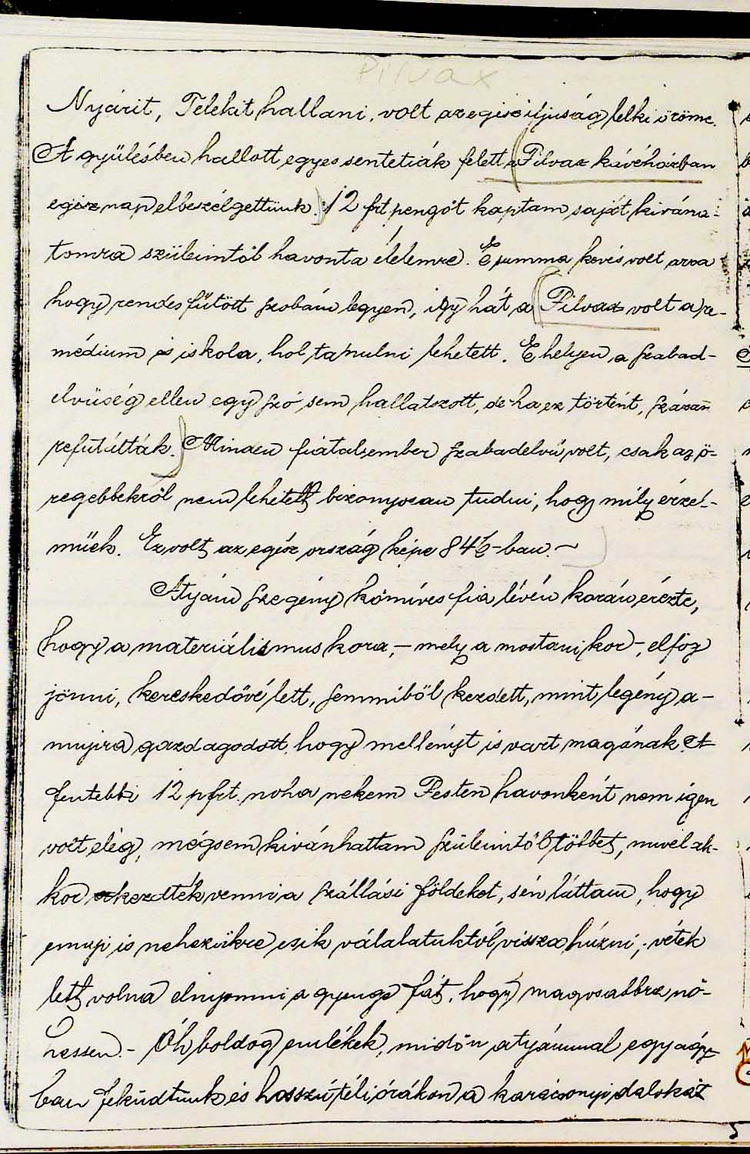 Pilvax
Nyárit, Telekit hallani, volt az egész ifjuság lelki öröme.
A gyülésben hallott egyes sentetiák felett a Pilvax kávéházban
egész nap elbeszélgettünk. 12 frt pengőt kaptam saját kivána-
tomra szüleimtől havonta élelemre. E summa kevés volt arra
hogy rendes fűtött szobám legyen, igy hát a Pilvax volt a re-
médium és iskola, hol tanulni lehetett. E helyen a szabad-
elvüség ellen egy szó sem hallatszott, de ha ez történt, százan
refutálták. Minden fiatal ember szabadelvü volt, csak az ö-
regebbekről nem lehetett bizonyosan tudni, hogy mily érzel-
müek. Ez volt az egész ország képe 84½-ban. ~
Atyám szegény kőmíves fia lévén korán érezte,
hogy a materialismus kora, – mely a mostani kor –, el fog
jönni, kereskedővé lett, semmiből kezdett, mint legény a-
nnyira gazdagodott, hogy mellényt is vart magának. A
fentebbi 12 pfrt. noha nekem Pesten havonként nem igen
volt elég, mégsem kivánhattam szüleimtől többet, mivel ak-
kor kezdték venni a szállási földeket, s én láttam, hogy
ennyi is nehezükre esik válalatuktól vissza húzni, – vétek
lett volna elnyomni a gyenge fát, hogy magosabbra nö-
hessen. – Óh boldog emlékek, midőn atyámmal egy ágy-
ban feküdtünk és hosszú téli órákon a karácsonyi dalokat